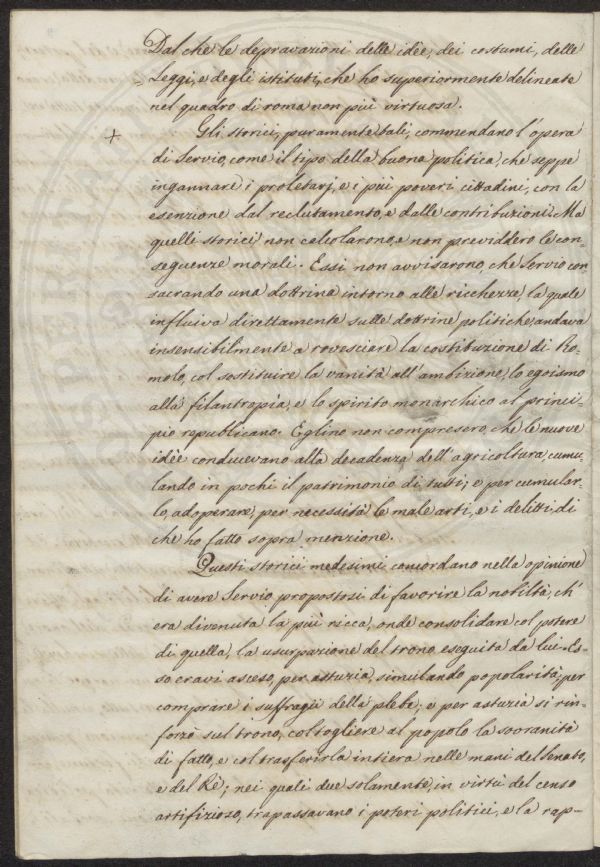 Dal che le depravazioni delle idèe, dei costumi, delle
Leggi, e degli istituti, che ho superiormente delineate
nel quadro di roma non più virtuosa.
+ Gli storici, puramente tali, commendano l'opera
di Servio, come il tipo della buona politica, che seppe
ingannare i proletarj, e i più poveri cittadini, con la
esenzione dal reclutamento, e dalle contribuzioni. Ma
quelli storici non calcolarono, e non previddero le con-
seguenze morali. Essi non avvisarono, che Servio con
sacrando una dottrina intorno alle ricchezze, la quale
influiva direttamente sulle dottrine politiche, andava
insensibilmente a rovesciare la costituzione di Ro-
molo, col sostituire la vanità all'ambizione, lo egoismo
alla filantropìa, e lo spirito monarchico al princi-
pio republicano. Eglino non compresero, che le nuove
idèe conducevano alla decadenza dell'agricoltura, cumu-
lando in pochi il patrimonio di tutti; e per cumular-
lo, adoperare, per necessità, le male arti, e i delitti, di
che ho fatto sopra menzione.
Questi storici medesimi concordano nella opinione
di avere Servio propostosi di favorire la nobiltà, ch'
era divenuta la più ricca, onde consolidare col potere
di quella, la usurpazione del trono, eseguita da lui. Es-
so eravi asceso, per astuzia, simulando popolarità, per
comprare i suffragii della plebe, e per astuzia si rin-
forzò sul trono, col togliere al popolo la sovranità
di fatto, e col trasferirla intiera nelle mani del Senato,
e del Rè; nei quali due solamente, in virtù del censo
artifizioso, trapassavano i poteri politici, e la rap-